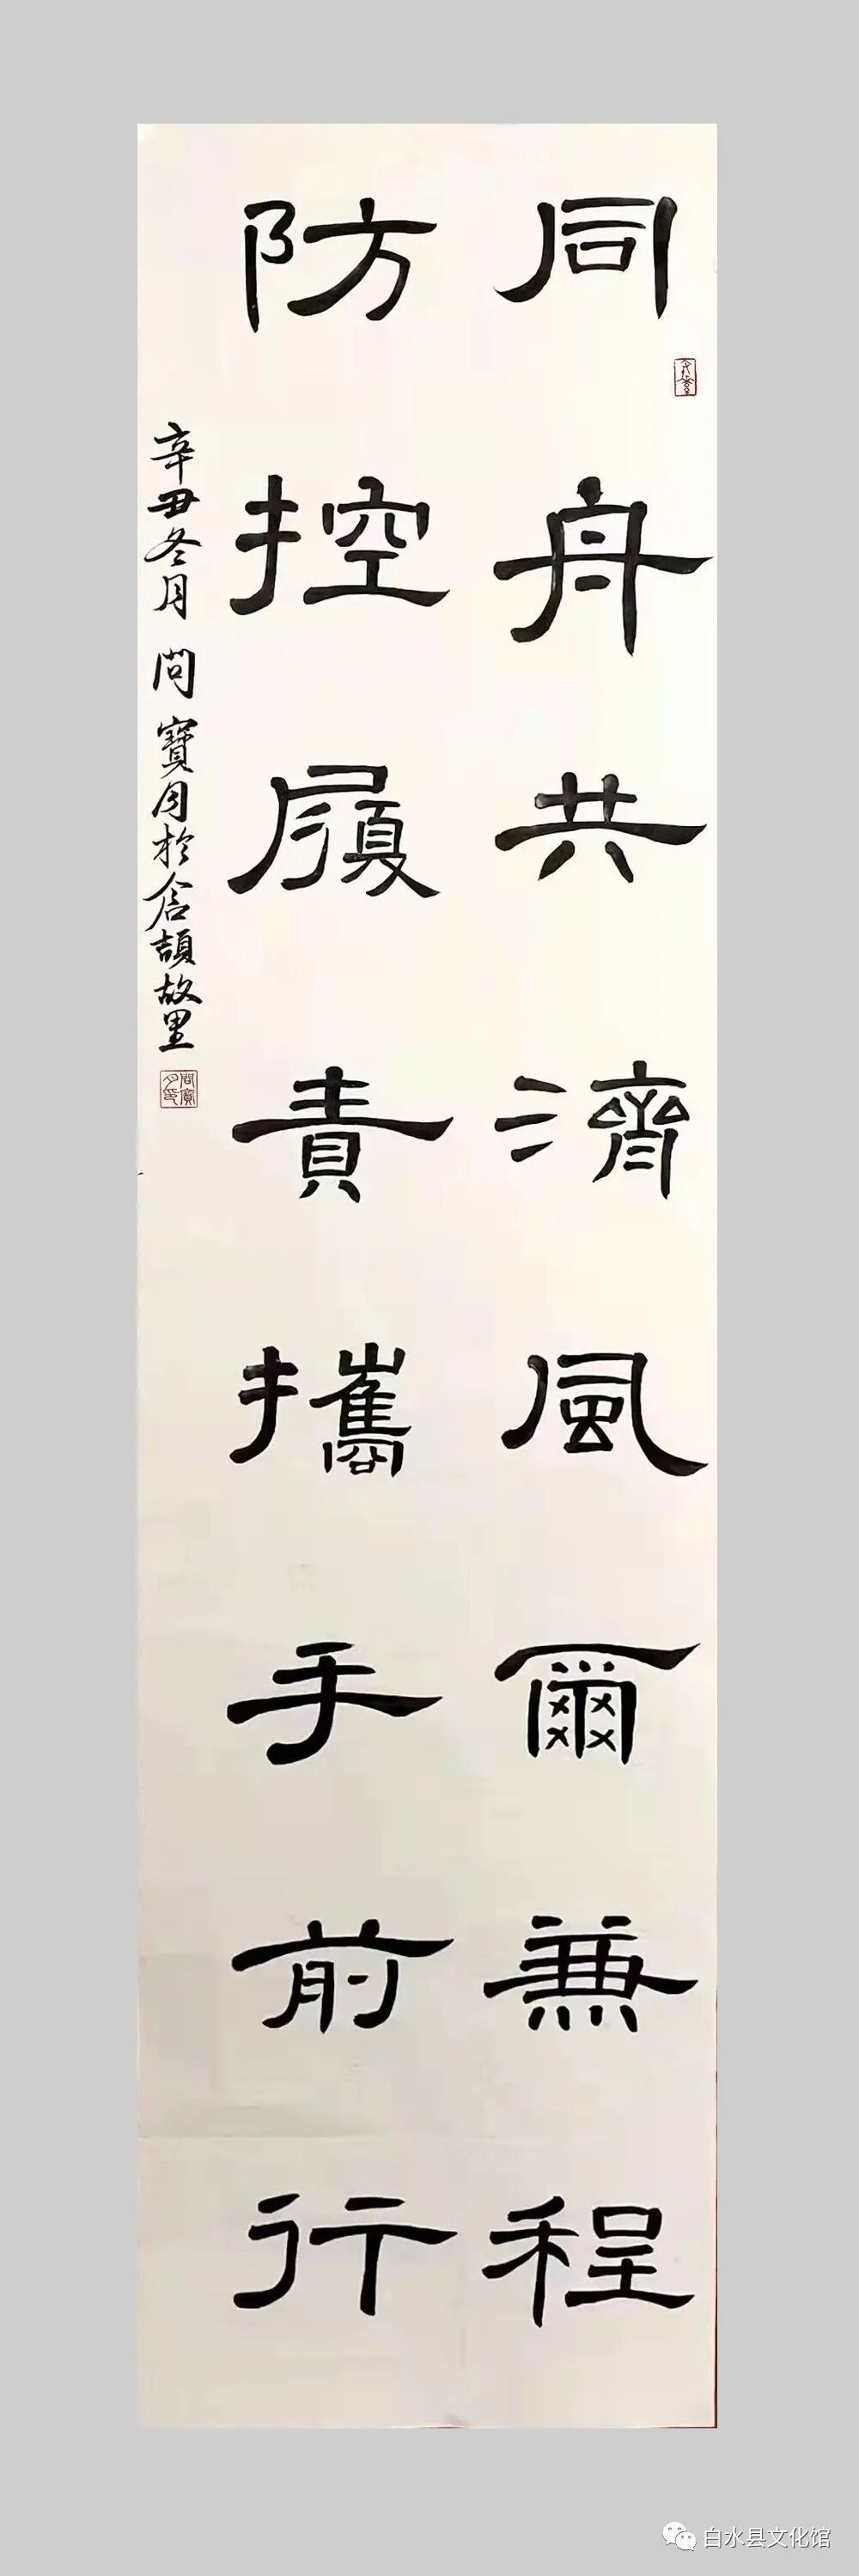 同舟共濟風爾兼程
防控履責攜手前行
辛丑冬月 問寶月於倉頡故里
問寶月印
白水县文化馆